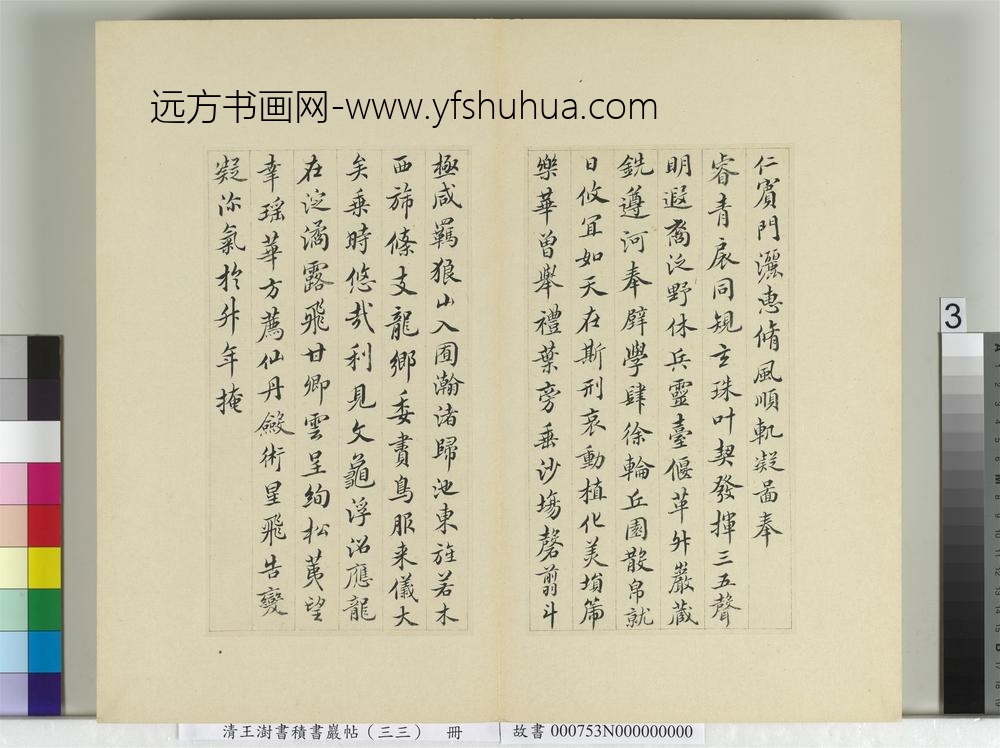 远方书画网-www.yfshuhua.com
仁賓門灑惠脩風順軌凝畐奉
睿青扆同規玄珠叶契發揮三五聲
明遐裔泛野休兵靈臺偃革升巖藏
銑遵河奉壁學肆徐輪丘園散帛就
日攸冝如天在斯刑哀動植化美塤箎
樂華曾舉禮葉旁垂沙塲罄翦斗
極咸羈狼山入囿瀚渚歸池東旌若木
西斾條支龍鄉委賮鳥服来儀大
矣乗時悠哉利見文龜浮沼應龍
在淀潏露飛甘卿雲呈絢松荑望
幸瑶華方薦仙丹斂術星飛告變
凝沴氣於升年掩
清王澍書積書巖帖（三三） 冊
故書 000753N000000000
3